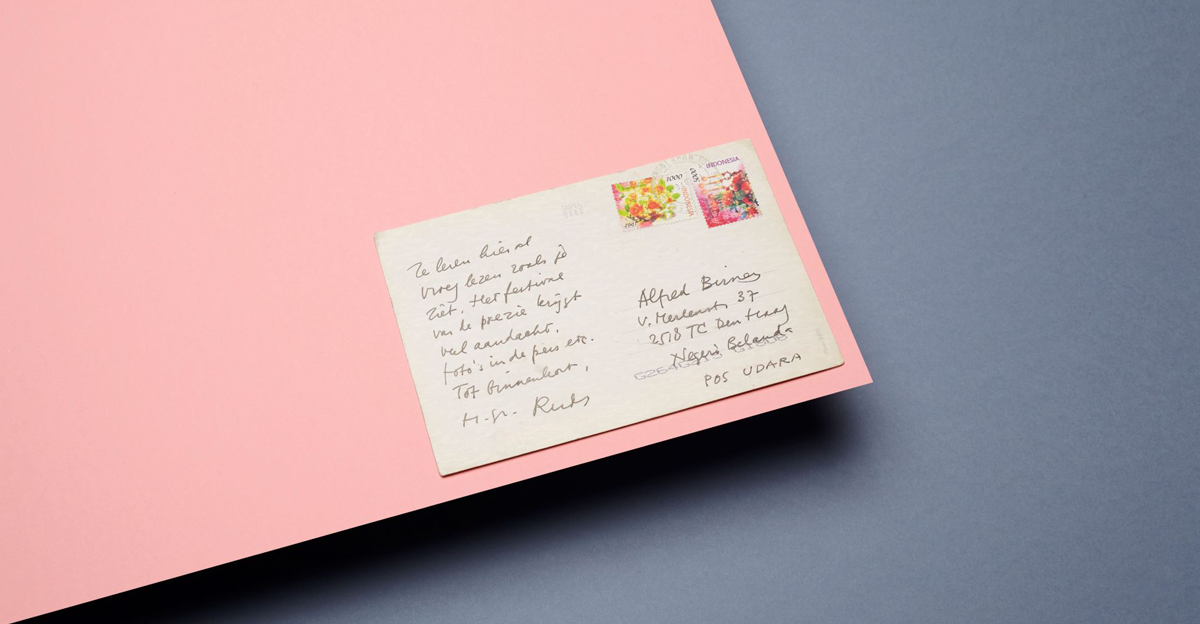 1000
INDONESIA
5000
INDONESIA
Ze leren hier al
vroeg lezen zoals je
ziet. Het festival
van de poëzie krijgt
veel aandacht,
foto's in de pers etc.
Tot binnenkort,
H. gr. Ruds
Alfred Birney
v. Merlenstr 37
2518 TC Den Haag
Negeri Belanda
POS UDARA